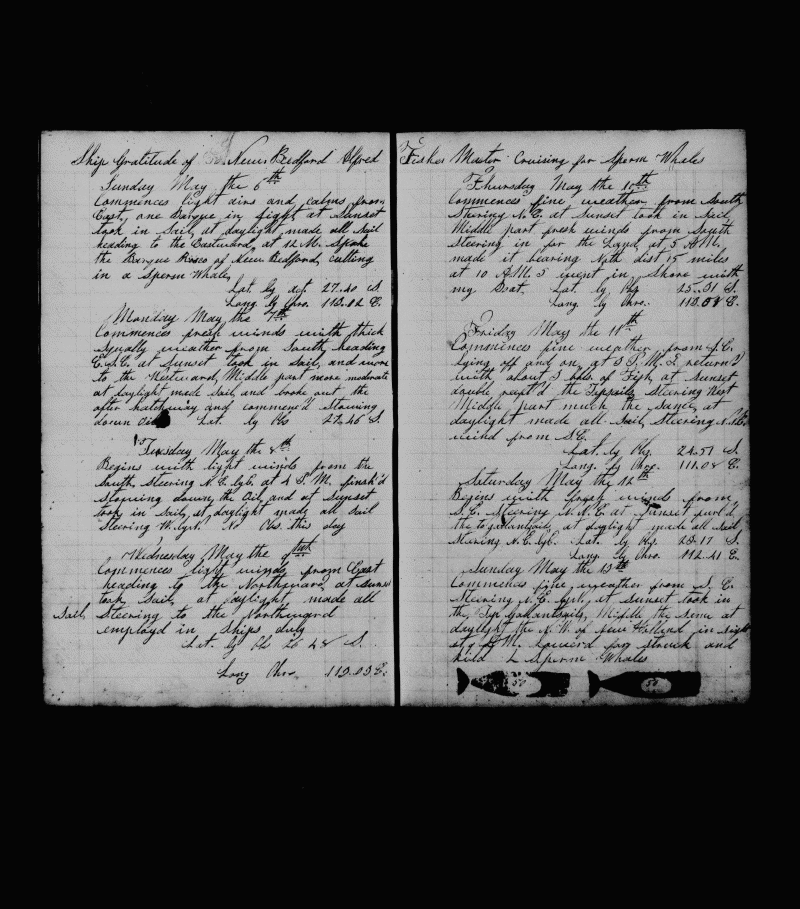 Ship Gratitude of New Bedford Alfred
Sunday May the 6th
Commences light airs and calms from
East, one Barque in sight at Sunset
took in Sail, at daylight made all Sail
heading to the Eastward, at 12 M. Spoke
the Barque of New Bedford, cutting
in a Sperm Whale,
Lat. by act. 27.40 S
Long. by Chro. 112.12 E.
Monday May the 7th
Commences fresh winds with thick
squally weather from South, heading
at Sunset took in Sail, and wore
to the Westward, Middle part more moderate
at daylight made Sail and broke out the
after hatchway and commenc'd stowing
down Oil Lat. by Obs 27.46 S.
Tuesday May the 8th
Begins with light winds from the
South, steering N.E. by E. at 4 P.M. finish'd
stowing down the Oil, and at Sunset
took in Sail, at daylight made all Sail
Steering W. by N. No Obs. this day
Wednesday May the 9th
Commences light winds from East
heading to the Northward at Sunset
took Sail, at daylight made all
Sail, Steering to the Northward
employd in Ships duty
Lat. by Obs 26 48 S.
Long Chro. 112.03 E.
Fisher Master Cruising for Sperm Whales
Thursday May the 10th
Commences fine weather from South
Steering N.E. at Sunset took in Sail
Middle part fresh winds from South
Steering in for the Land, at 5 A.M.
made it bearing Nth dist 15 miles
at 10 A.M. I went in Shore with
my Boat. Lat. by Obs 25.31 S
Long. by Chro. 112.58 E.
Friday May the 11th
Commences fine weather from S.E.
lying off and on, at 3 P.M. I return'd
with about 3 bbls of Fish, at Sunset
double reef'd the Topsails Steering West
Middle part much the Same, at
daylight made all Sail Steering
wind from S.E.
Lat. by Obs. 24.51 S.
Long. by Chro. 111.08 E.
Saturday May the 12th
Begins with fresh winds from
S.E. Steering N.N.E. at Sunset furl'd
the topgallantsails, at daylight made all Sail
Steering N.E. by E. Lat. by Obs. 23.17 S.
Long by Chro. 112.21 E.
Sunday May the 13th
Commences fine weather from S.E.
Steering N.E. by E, at Sunset took in
the Top Gallantsails, Middle the Same at
daylight the N.W. of New Holland in sight
at M. Lower'd for struck and
kild 2 Sperm Whales
50